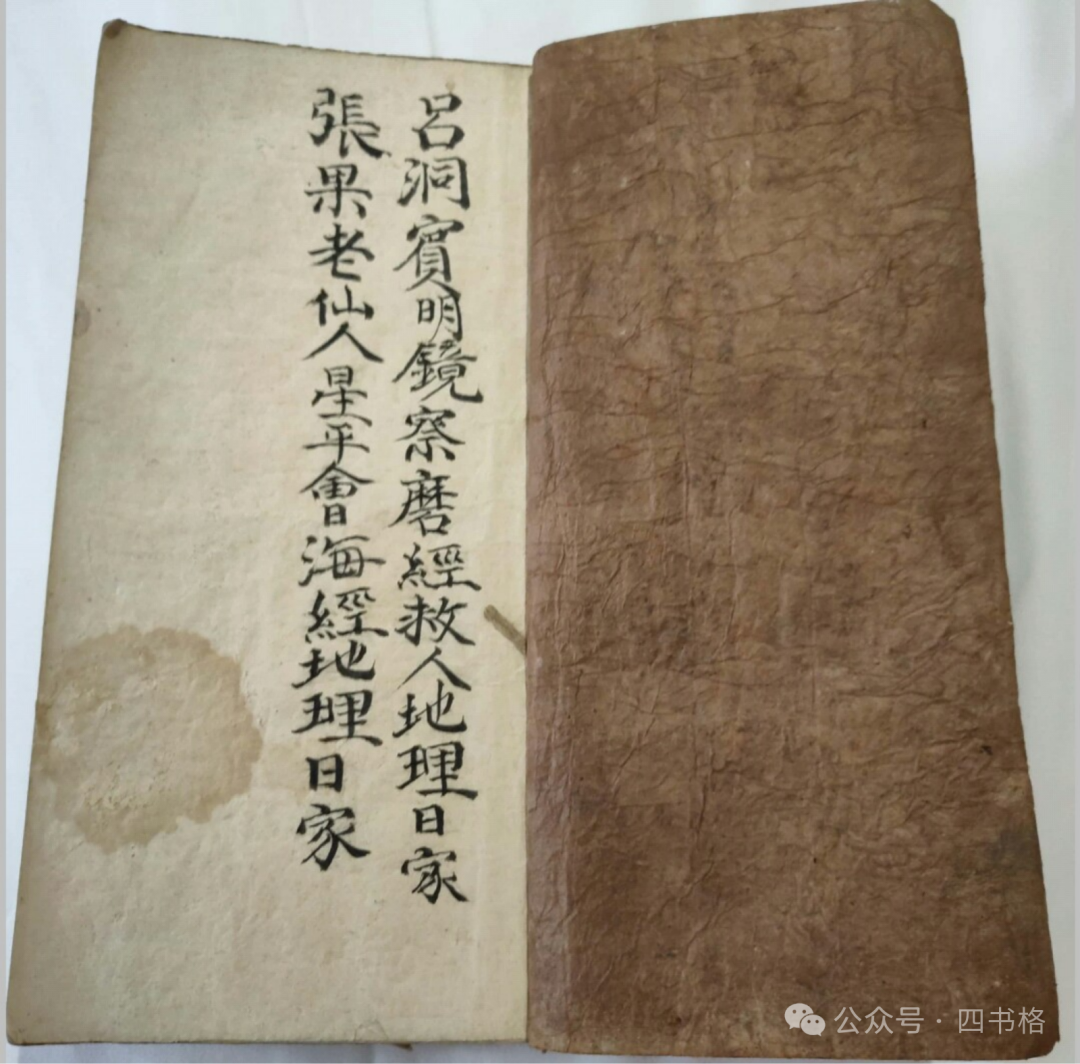 呂洞賓明鏡察磨經救人地理日家
張果老仙人星平會海經地理日家
公众号 · 四书格